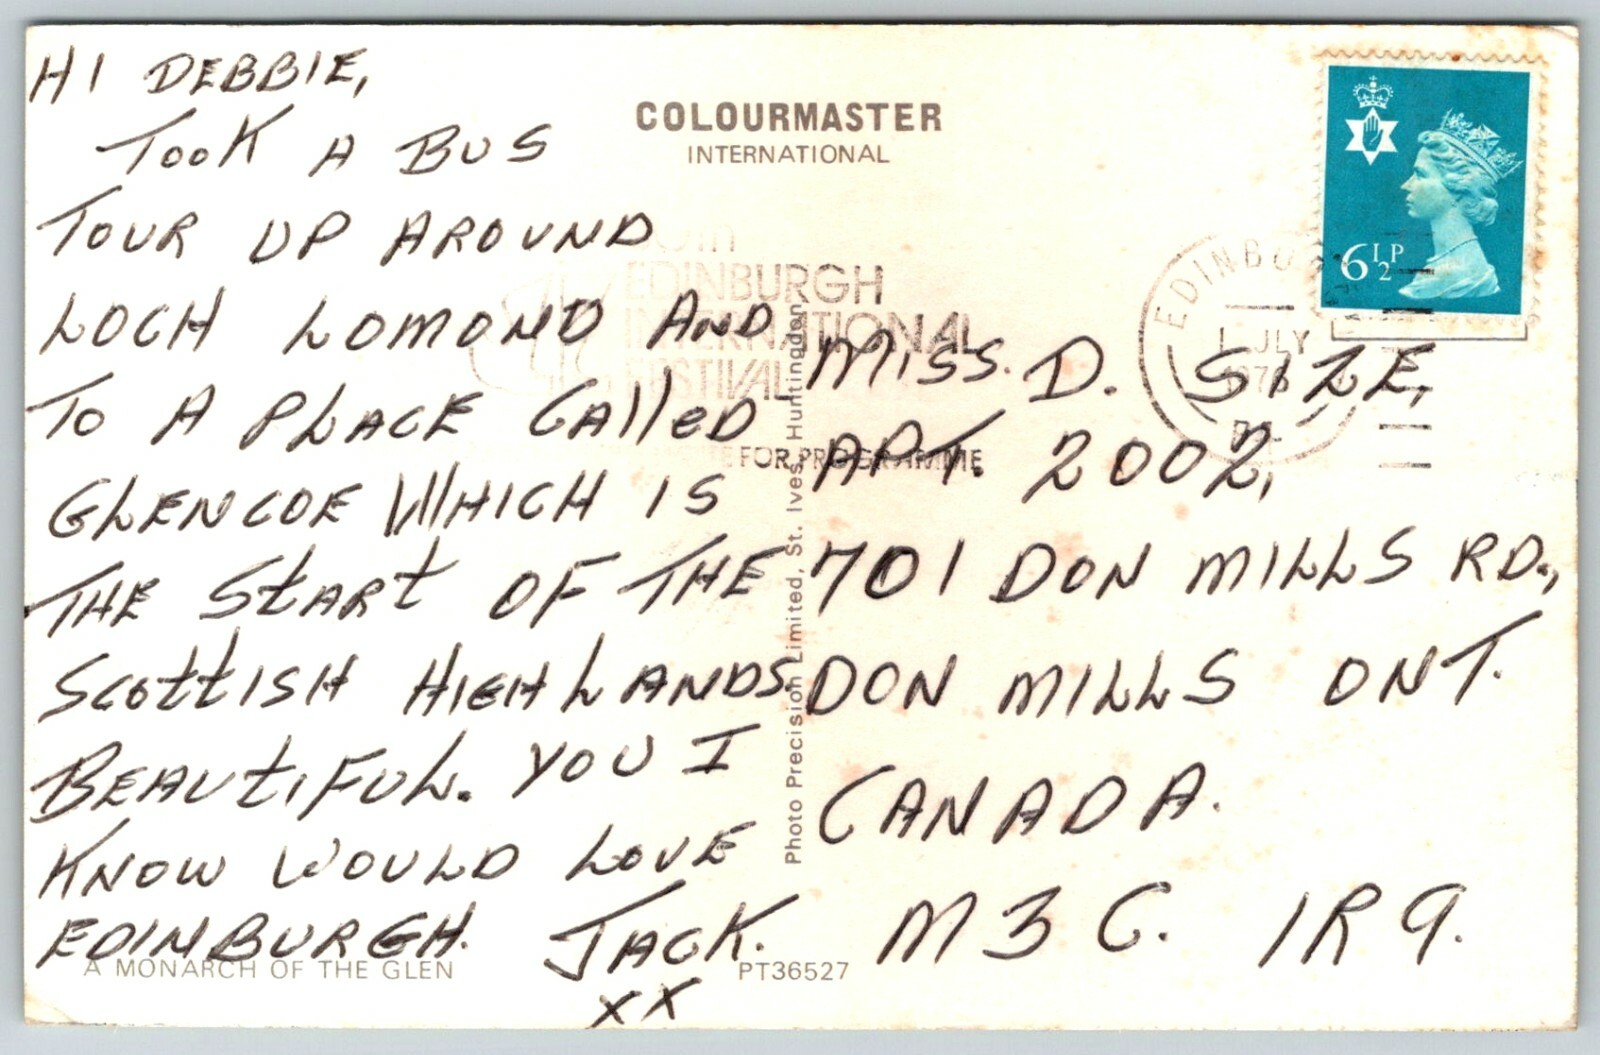 HI DEBBIE,
TOOK A BUS
TOUR UP AROUND
LOCH LOMOND AND
TO A PLACE CAllED
GLENCOE WHICH IS
THE START OF THE
SCOTTISH HIGHLANDS
BEAUTIFUL. YOU I
KNOW WOULD LOVE
EDINBURGH. JACK.
XX
A MONARCH OF THE GLEN
PT36527
COLOURMASTER
INTERNATIONAL
EDINBURGH
INTERNATIONAL
FESTIVAL
FOR PROGRAMME
Photo Precision Limited, St. Ives, Huntingdon
6½P
EDINBU
1 JULY
1976
MISS. D. SIZE,
APT. 2002,
701 DON MILLS RD.,
DON MILLS ONT.
CANADA.
M3C. 1R9.